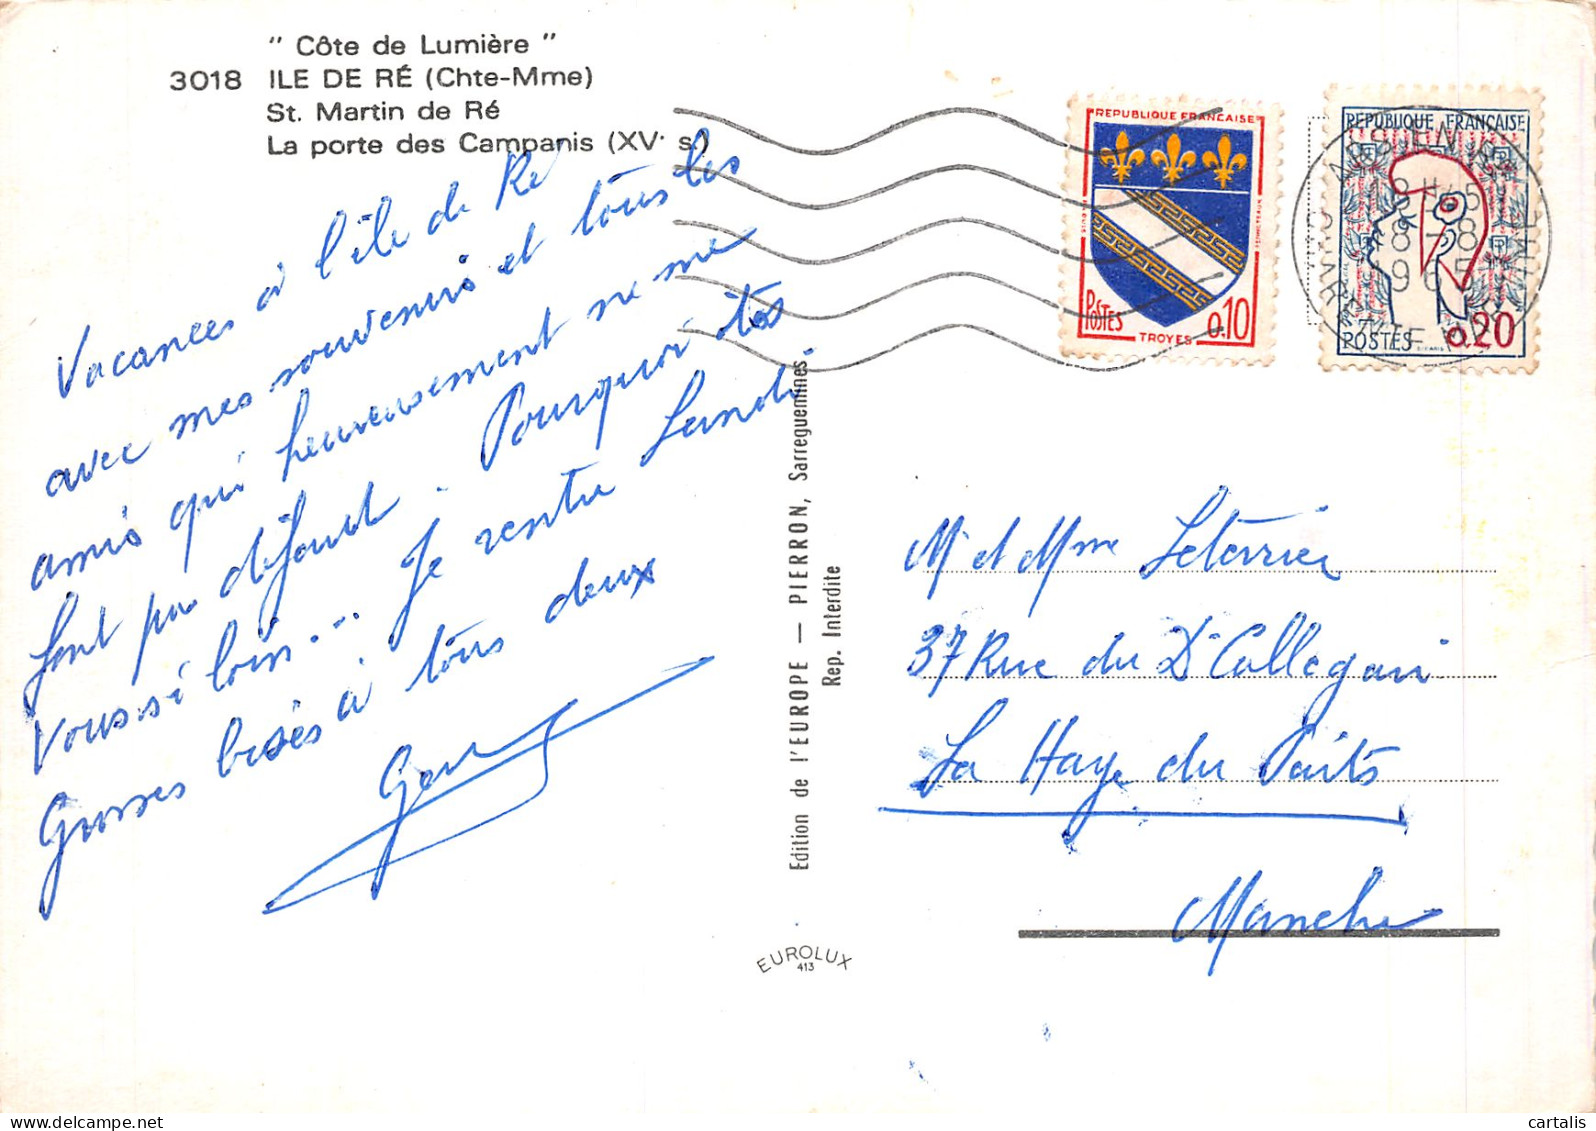 " Côte de Lumière "
3018 ILE DE RÉ (Chte-Mme)
St. Martin de Ré
La porte des Campanis (XVᵉ s.)
Vacances à l'île de Ré
avec mes souvenirs et tous les
amis qui heureusement ne me
font pas défaut. Pourquoi êtes
Vous si loin... Je rentre Lundi
Grosses bises à tous deux
REPUBLIQUE FRANÇAISE
POSTES 0.10
TROYES
REPUBLIQUE FRANÇAISE
POSTES 0.20
18H45
8-8
1965
CHARENTE MARITIME
Edition de l'EUROPE — PIERRON, Sarreguemines
Rep. Interdite
Mr et Mme Leterrier
37 Rue du Dr Callegari
La Haye du Puits
Manche
EUROLUX
413
cartalis | delcampe.net